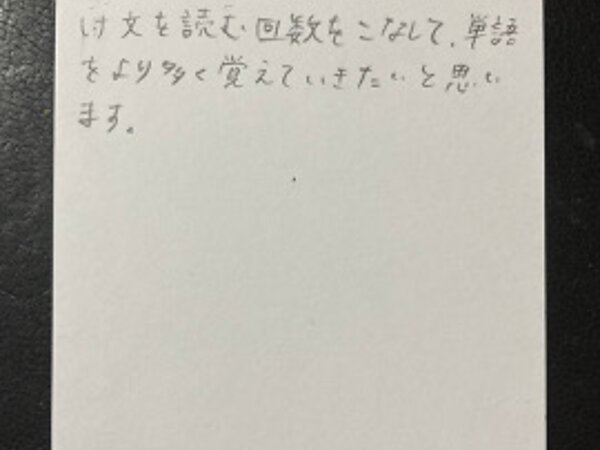 け文を読む回数をこなして、単語
をより多く覚えていきたいと思い
ます。